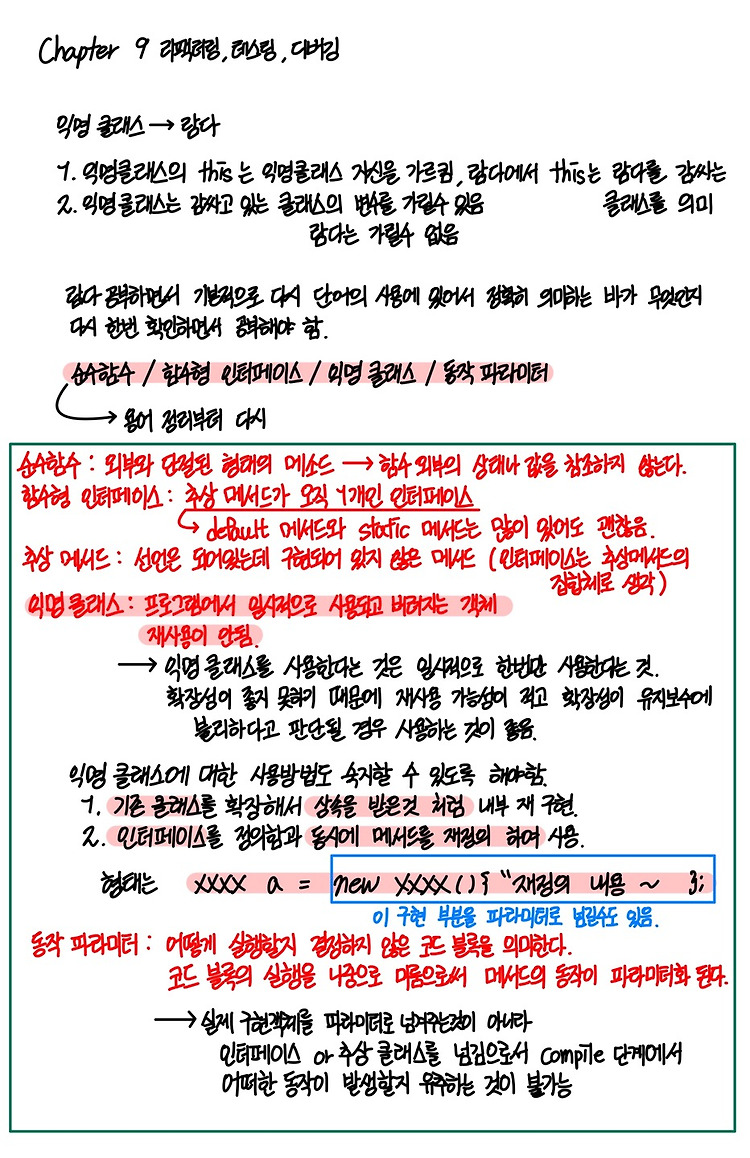 Chapter 9 리팩터링, 테스팅, 디버깅
익명 클래스 → 람다
1. 익명클래스의 this는 익명클래스 자신을 가르킴, 람다에서 this는 람다를 감싸는
클래스를 의미
2. 익명클래스는 감싸고 있는 클래스의 변수를 가릴수 있음
람다는 가릴수 없음
람다 공부하면서 기본적으로 다시 단어의 사용에 있어서 정확히 의미하는 바가 무엇인지
다시 한번 확인하면서 공부해야 함.
순수함수 / 함수형 인터페이스 / 익명 클래스 / 동작 파라미터
→ 용어 정리부터 다시
순수함수 : 외부와 단절된 형태의 메소드 → 함수 외부의 상태나 값을 참조하지 않는다.
함수형 인터페이스 : 추상 메서드가 오직 1개인 인터페이스
→ default 메서드와 static 메서드는 많이 있어도 괜찮음.
추상 메서드 : 선언은 되어있는데 구현되어 있지 않은 메서드 (인터페이스는 추상메서드의
집합체로 생각)
익명 클래스 : 프로그램에서 일시적으로 사용되고 버려지는 객체
재사용이 안됨.
→ 익명 클래스를 사용한다는 것은 일시적으로 한번만 사용한다는 것.
확장성이 좋지 못하기 때문에 재사용 가능성이 적고 확장성이 유지보수에
불리하다고 판단될 경우 사용하는 것이 좋음.
익명 클래스에 대한 사용방법도 숙지할 수 있도록 해야함.
1. 기존 클래스를 확장해서 상속을 받은것 처럼 내부 재 구현.
2. 인터페이스를 정의함과 동시에 메서드를 재정의 하여 사용.
형태는 XXXX a = new XXXX(){ "재정의 내용 ~ };
이 구현 부분을 파라미터로 넘길수도 있음.
동작 파라미터 : 어떻게 실행할지 결정하지 않은 코드 블록을 의미한다.
코드 블록의 실행을 나중으로 미룸으로써 메서드의 동작이 파라미터화 된다.
→ 실제 구현객체를 파라미터로 넘겨주는것이 아니라
인터페이스 or 추상 클래스를 넘김으로서 compile 단계에서
어떠한 동작이 발생할지 유추하는 것이 불가능